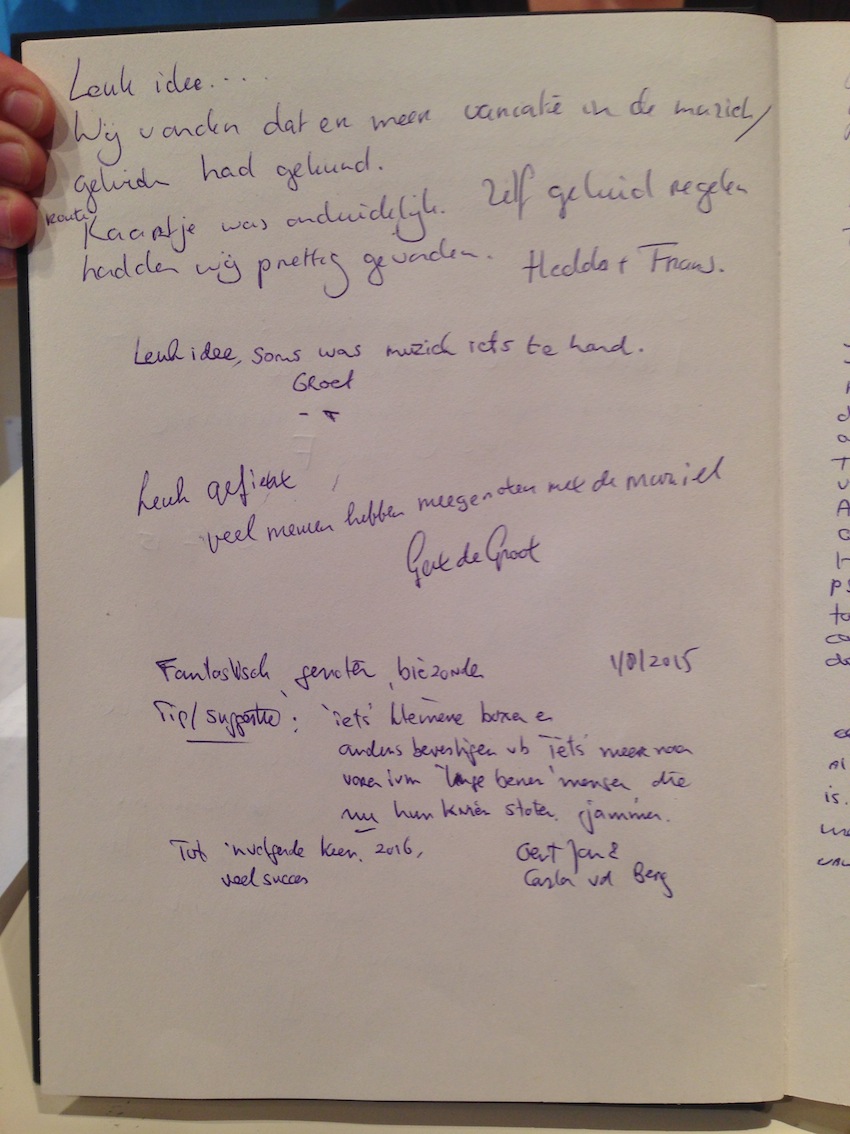 Leuk idee....
Wij vonden dat er meer variatie in de muziek/
geluiden had gekund.
route
Kaartje was onduidelijk. Zelf geluid regelen
hadden wij prettig gevonden. Hedda + Frans.
Leuk idee, soms was muziek iets te hard.
Groet
Leuk gefietst
veel mensen hebben meegenoten met de muziek
Gert de Groot
Fantastisch genoten, biezonder 1/8/2015
Tip/suggestie: 'iets' kleinere boxen en
anders bevestigen vb 'iets' meer naar
voren ivm 'lange benen' mensen die
nu hun knieën stoten. jammer.
Tot 'n volgende keer, 2016,
veel succes
Gert Jan &
Carla vd Berg
is.